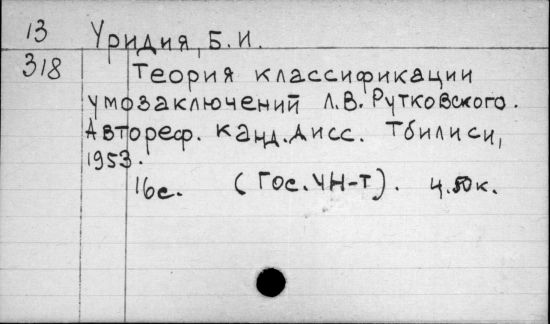 13 Уридия, Б.И.
318 Теория классификации
умозаключений Л.В. Рутковского.
Автореф. канд. дисс. Тбилиси,
1953.
16с. (Гос. УН-Т). Ц. 50к.